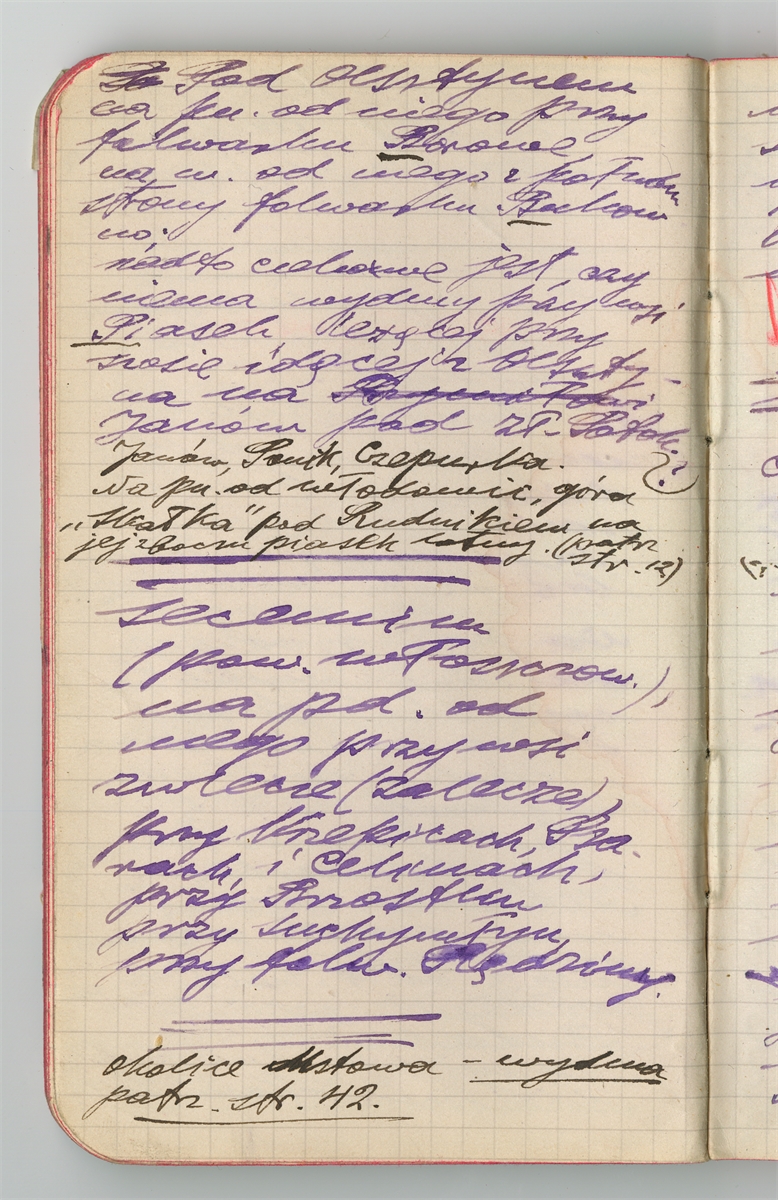 Pod Olsztynem
na pn. od niego przy
folwarku Borowe,
na w. od niego z połudn.
strony folwarku Bukow
no.
nadto ciekawe jest, czy
niema wydmy przy wsi
Piasek, leżącej przy
szosie idącej z Olszty-
na na
Janów pod Zł. Potok.
Janów, Ponik, Czepurka. ?
Na pn. od Włodowic, góra
„Skałka" pod Rudnikiem na
jej zboczu piasek lotny. (patrz
str. 12)
Secemin
(pow. Włoszczow.),
na pd. od
niego przy wsi
(Zalecze),
przy Krzepicach, Psa-
rach, i Celinach,
przy Brzostku
przy Suchymłynu,
przy folw. Rędziny.
okolice Mstowa – wydma
patrz. str. 42.